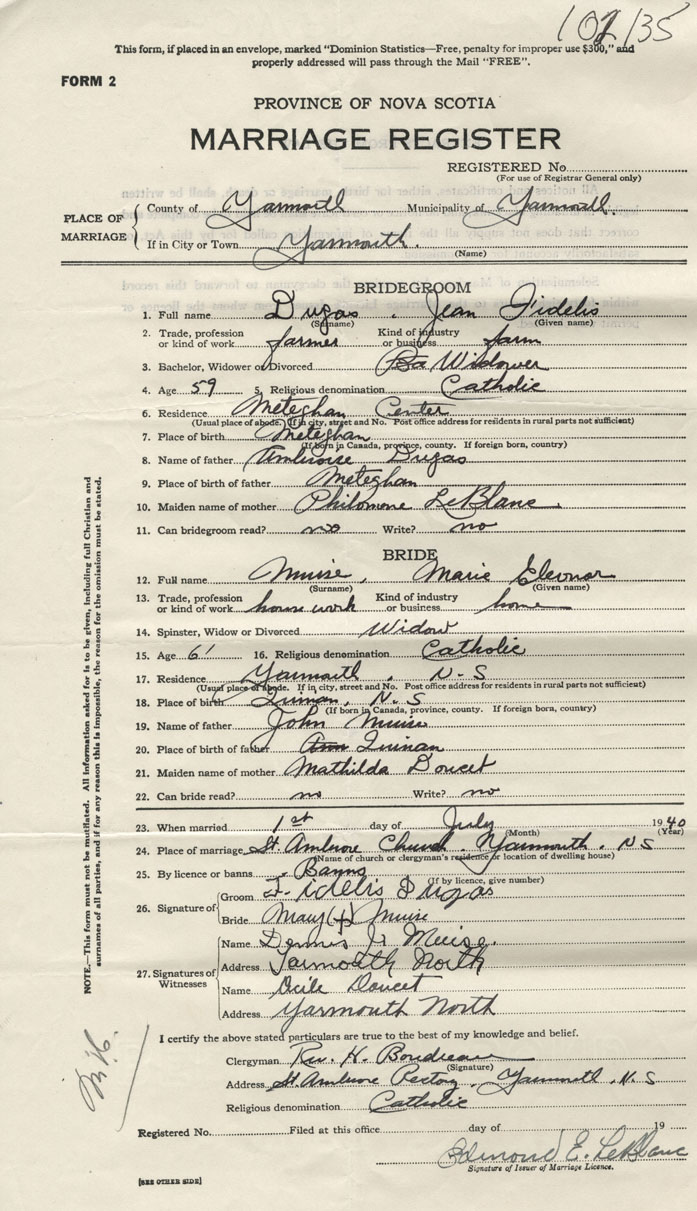 102/35
This form, if placed in an envelope, marked "Dominion Statistics—Free, penalty for improper use $300," and
properly addressed will pass through the Mail "FREE".
FORM 2
PROVINCE OF NOVA SCOTIA
MARRIAGE REGISTER
REGISTERED No.
(For use of Registrar General only)
PLACE OF MARRIAGE
County of Yarmouth Municipality of Yarmouth
If in City or Town Yarmouth.
(Name)
BRIDEGROOM
1. Full name Dugas, Jean Fidelis
(Surname) (Given name)
2. Trade, profession or kind of work farmer Kind of industry or business farm
3. Bachelor, Widower or Divorced Ba Widower
4. Age 59 5. Religious denomination Catholic
6. Residence Meteghan Center
(Usual place of abode. If in city, street and No. Post office address for residents in rural parts not sufficient)
7. Place of birth Meteghan
(If born in Canada, province, county. If foreign born, country)
8. Name of father Ambroise Dugas
9. Place of birth of father Meteghan
10. Maiden name of mother Philomene LeBlanc
11. Can bridegroom read? no Write? no
BRIDE
12. Full name Muise, Marie Eleonar
(Surname) (Given name)
13. Trade, profession or kind of work house work Kind of industry or business home
14. Spinster, Widow or Divorced Widow
15. Age 61 16. Religious denomination Catholic
17. Residence Yarmouth, N-S
(Usual place of abode. If in city, street and No. Post office address for residents in rural parts not sufficient)
18. Place of birth Quinan, N.S
(If born in Canada, province, county. If foreign born, country)
19. Name of father John Muise
20. Place of birth of father Quinan
21. Maiden name of mother Mathilda Doucet
22. Can bride read? no Write? no
23. When married 1st day of July 1940
(Month) (Year)
24. Place of marriage St Ambrose Church. Yarmouth. NS
(Name of church or clergyman's residence or location of dwelling house)
25. By licence or banns Banns
(If by licence, give number)
26. Signature of Groom Fidelis Dugas
Bride Mary (+) Muise
27. Signatures of Witnesses
Name Dennis J. Muise.
Address Yarmouth North
Name Ocile Doucet
Address Yarmouth North
I certify the above stated particulars are true to the best of my knowledge and belief.
Clergyman Rev. H. Boudreau
(Signature)
Address St Ambrose Rectory, Yarmouth, N.S
Religious denomination Catholic
Registered No. Filed at this office day of 19
Edmond E. LeBlanc
Signature of Issuer of Marriage Licence.
[SEE OTHER SIDE]
NOTE.—This form must not be mutilated. All information asked for is to be given, including full Christian and
surnames of all parties, and if for any reason this is impossible, the reason for the omission must be stated.